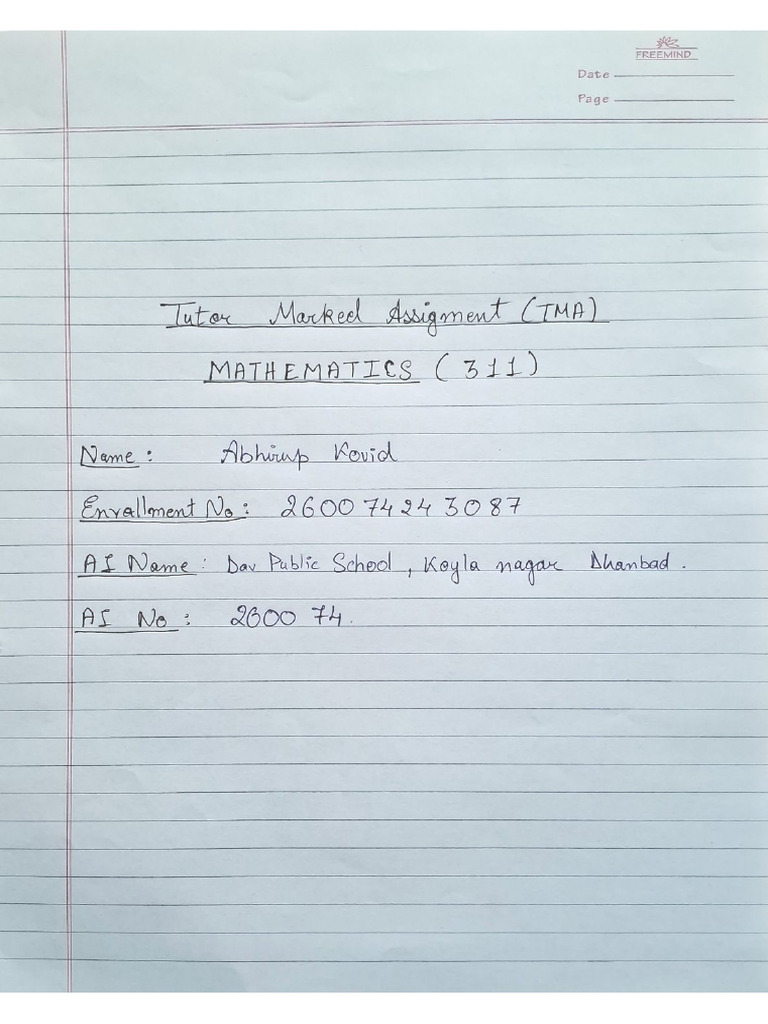 FREEMIND
Date
Page
Tutor Marked Assigment (TMA)
MATHEMATICS (311)
Name: Abhirup Kovid
Enrallment No: 260074243087
AI Name: Dav Public School, Koyla nagar Dhanbad.
AI No: 260074.